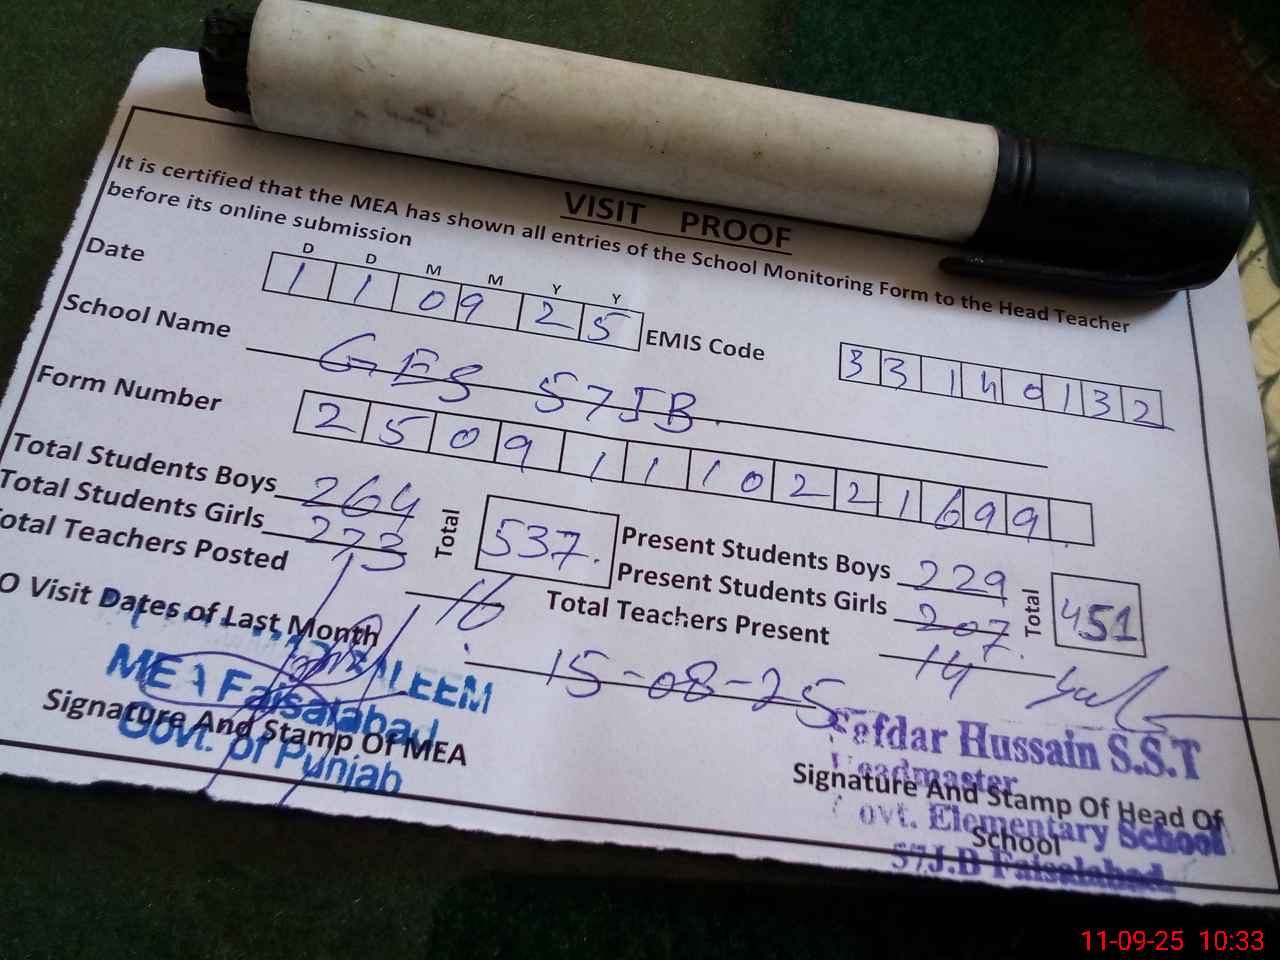 VISIT PROOF
It is certified that the MEA has shown all entries of the School Monitoring Form to the Head Teacher
before its online submission
D D M M Y Y
Date 1 1 0 9 2 5 EMIS Code 3 3 1 4 0 1 3 2
School Name GES 57JB
Form Number 2 5 0 9 1 1 1 0 2 2 1 6 9 9
Total Students Boys 264 Total 537. Present Students Boys 229 Total 451
Total Students Girls 273 Present Students Girls 207.
Total Teachers Posted 16 Total Teachers Present 14
O Visit Dates of Last Month 15-08-25
LEEM
MEA Faisalabad
Govt. of Punjab
Signature And Stamp Of MEA
Safdar Hussain S.S.T
Headmaster
Govt. Elementary School
57J.B Faisalabad.
Signature And Stamp Of Head Of
School
11-09-25 10:33